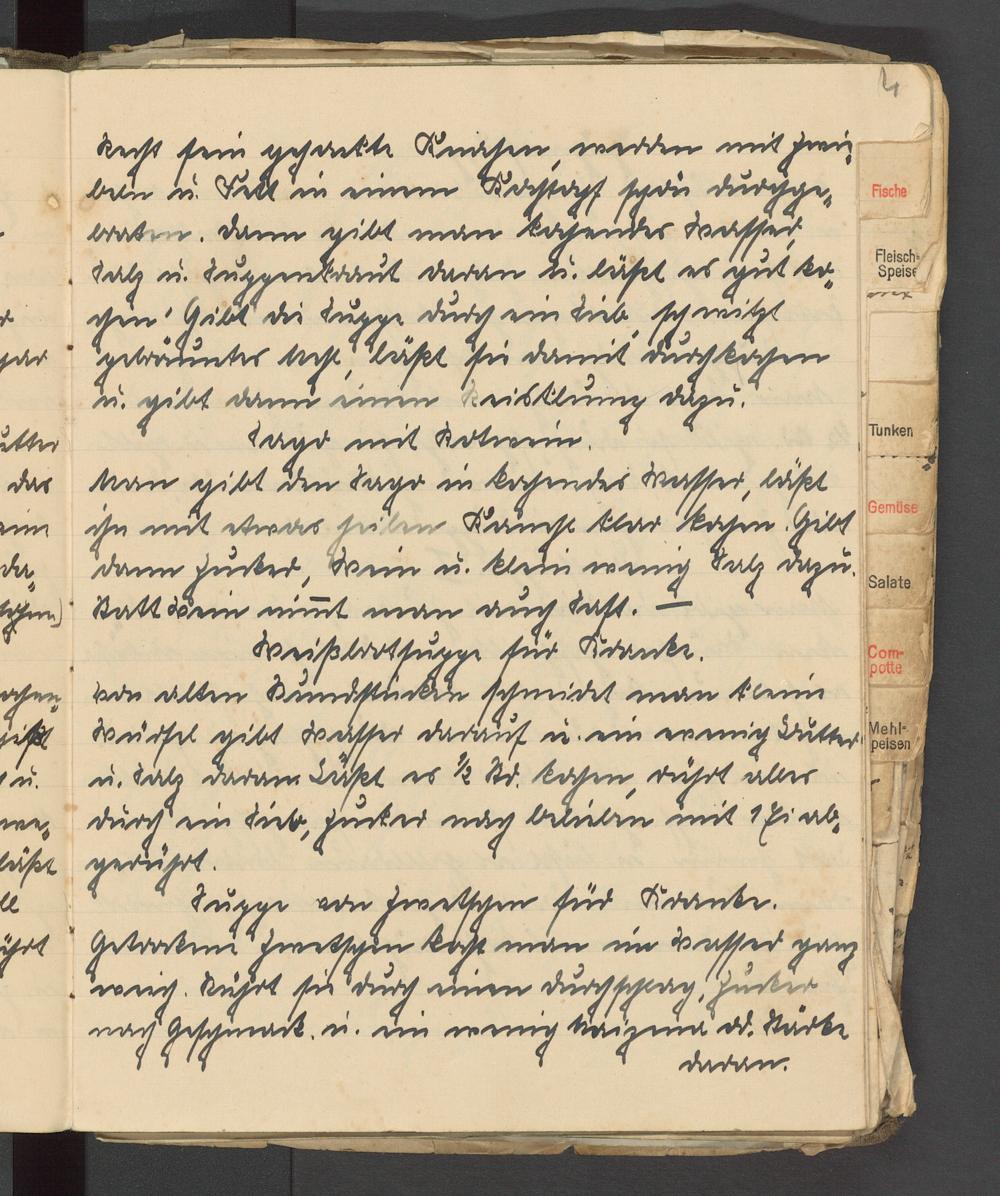 4
Recht fein gehackte Knochen, werden mit Zwie-
beln u. Fett in einem Kochtopf schön durchge-
braten. Dann gibt man kochendes Wasser,
Salz u. Suppenkraut daran u. läßt es gut ko-
chen. Gibt die Suppe durch ein Sieb, schwitzt
gebräuntes Mehl, läßt sie damit durchkochen
u. gibt dann einen dazu.
Sago mit Rotwein.
Man gibt den Sago in kochendes Wasser, läßt
ihn mit etwas heilen Kaneel klar kochen. Gibt
dann Zucker, Wein u. klein wenig Salz dazu.
Statt Wein nim̅t man auch Saft. —
Weißbrotsuppe für Kranke.
Von alten Rundstücken schneidet man kleine
Würfel gibt Wasser darauf u. ein wenig Butter
u. Salz daran. Läßt es ½ Std. kochen, rührt alles
durch ein Sieb, Zucker nach belieben mit 1 Ei ab-
gerührt.
Suppe von Zwetschen für Kranke.
Getrocknete Zwetschen kocht man in Wasser ganz
weich. Rührt sie durch einen Durchschlag, Zucker
nach Geschmack. u. ein wenig Maizena od. Stärke
daran.
Fische
Fleisch-
Speise
Tunken
Gemüse
Salate
Com-
potte
Mehl-
peisen
gar
utter
das
ein
da-
ochen-
u.
läßt
ührt